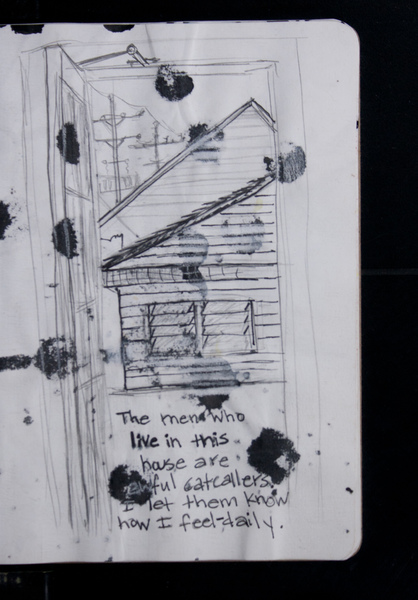 The men who
live in this
house are
awful catcallers.
I let them know
how I feel-daily.